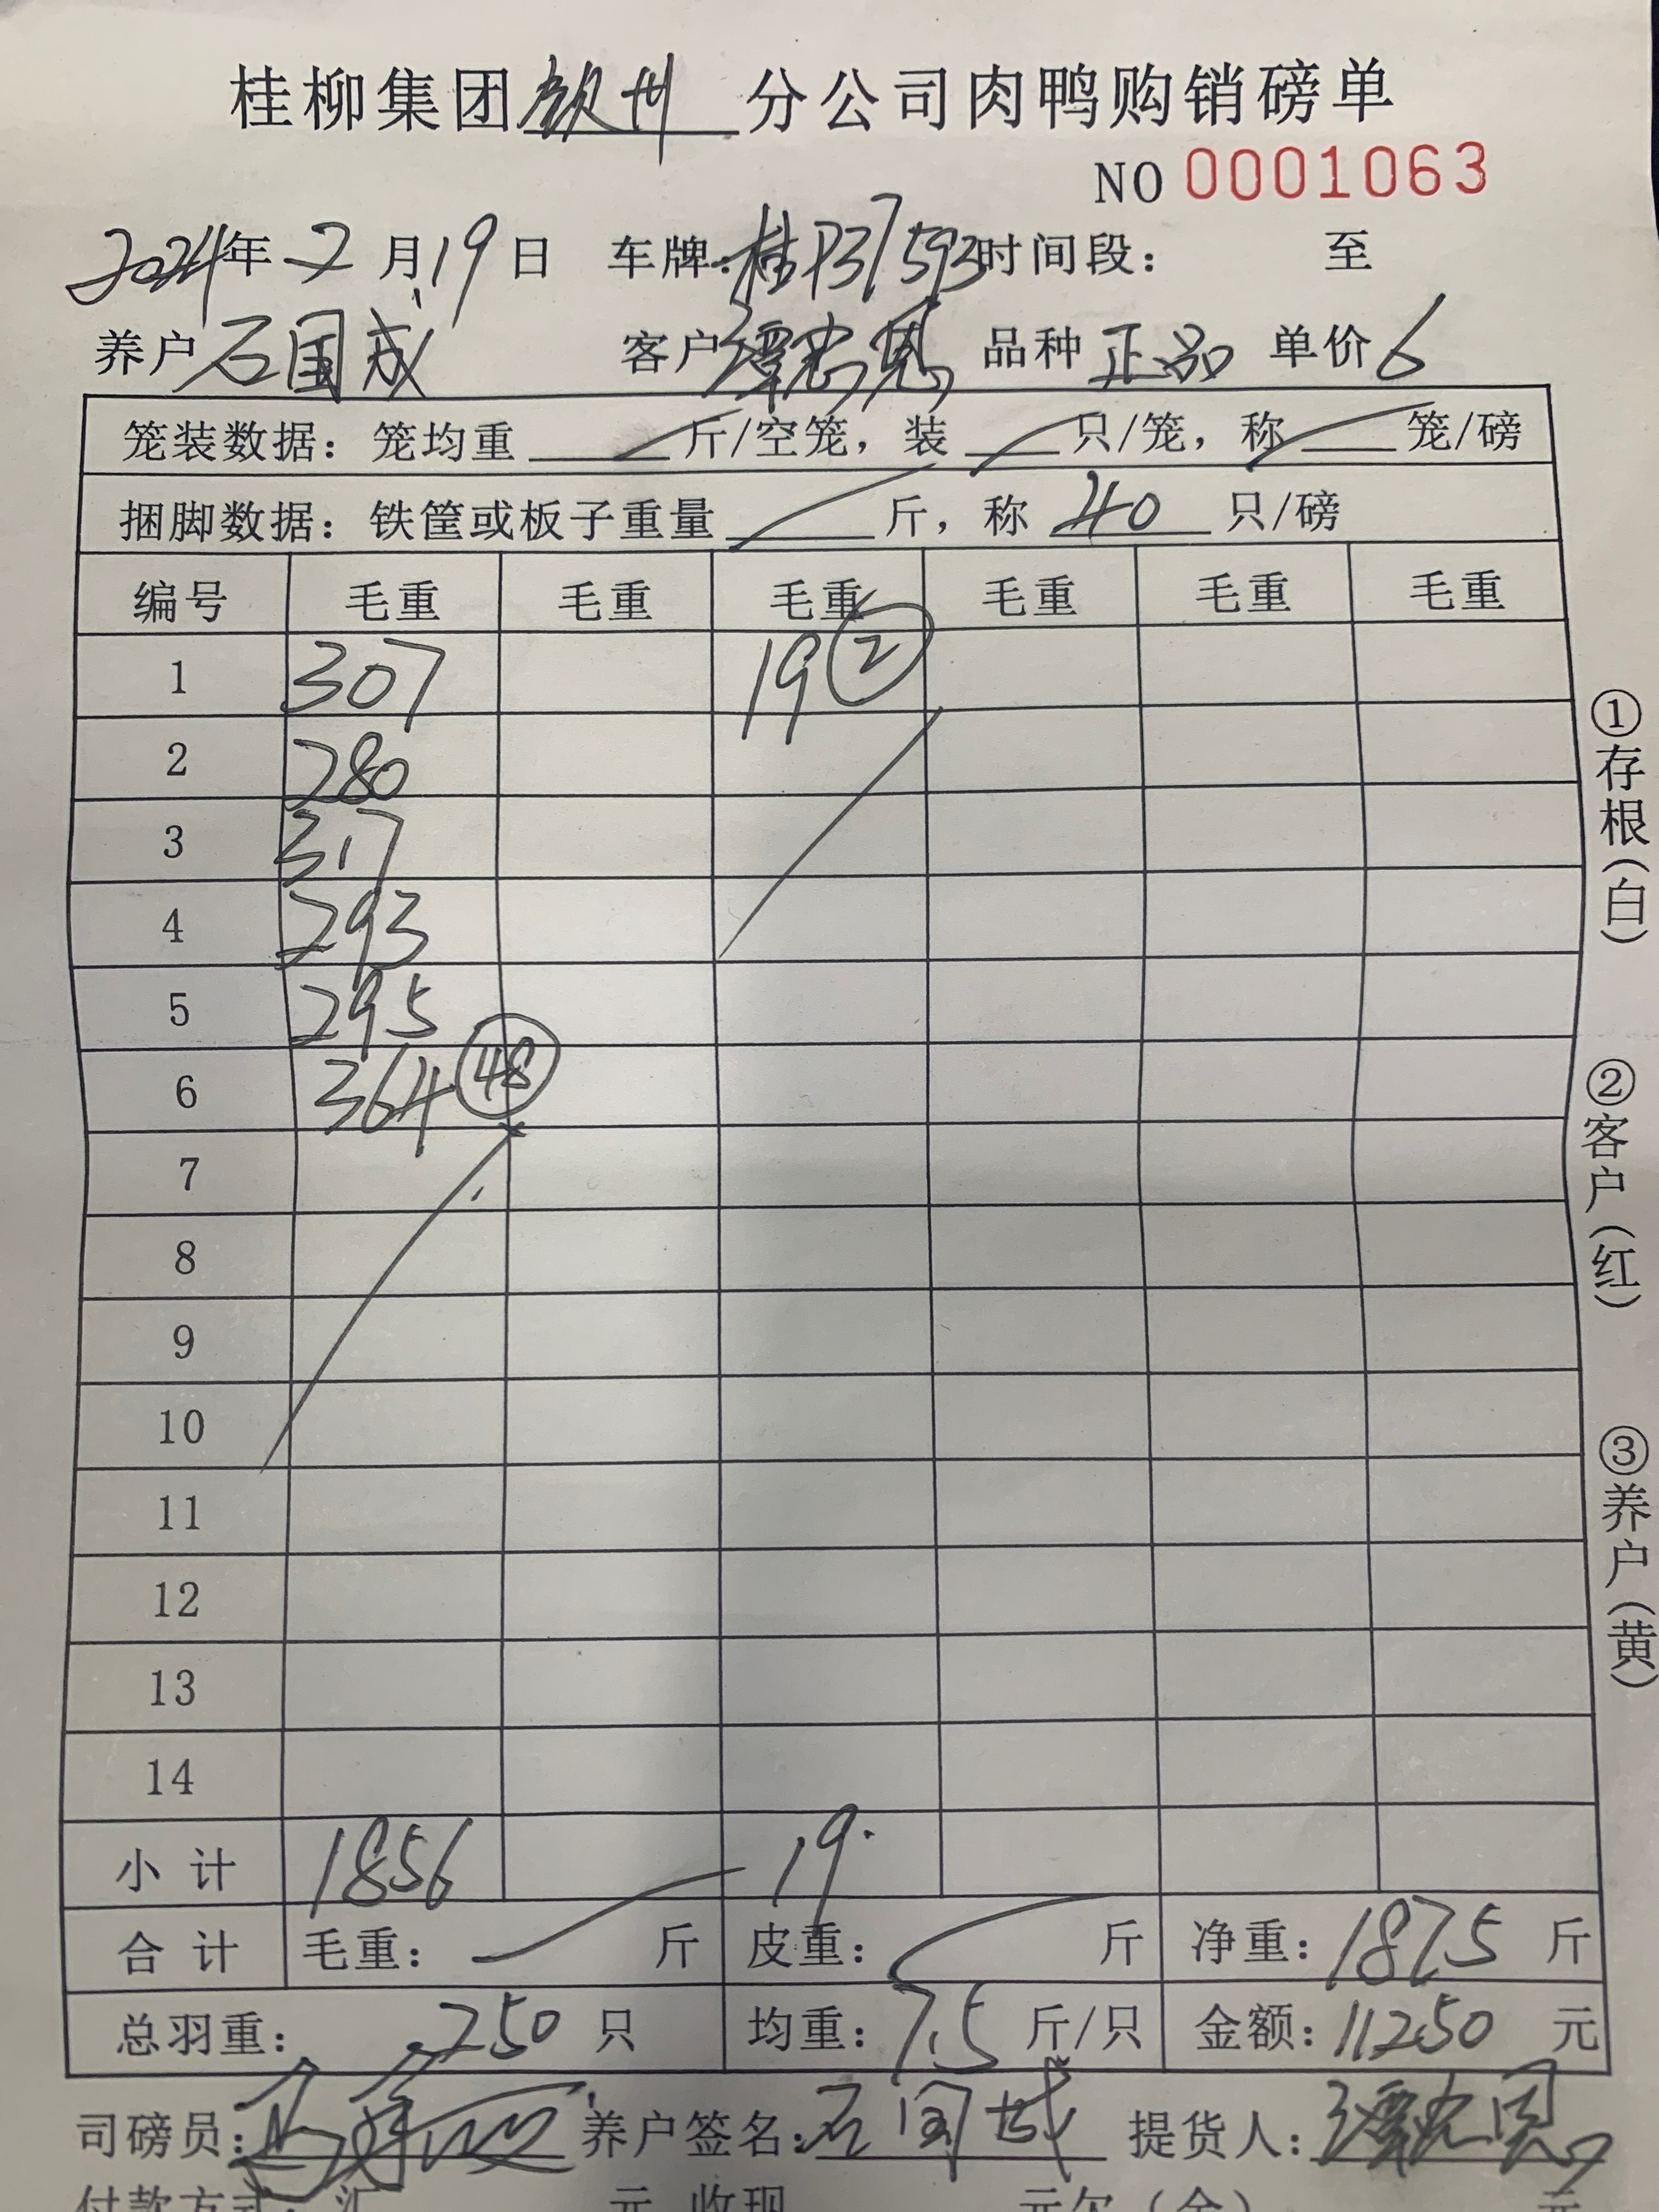 桂柳集团钦州分公司肉鸭购销磅单
NO 0001063
2024年2月19日 车牌:桂P37593时间段: 至
养户石国成 客户谭忠恩 品种正品 单价6
笼装数据: 笼均重 斤/空笼, 装 只/笼, 称 笼/磅
捆脚数据: 铁筐或板子重量 斤, 称 40 只/磅
编号 毛重 毛重 毛重 毛重 毛重 毛重
1 307 19 ②
2 280
3 317
4 293
5 295
6 364 48
7
8
9
10
11
12
13
14
小计 1856 19.
合计 毛重: 斤 皮重: 斤 净重: 1875 斤
总羽重: 250 只 均重: 7.5 斤/只 金额: 11250 元
司磅员: 养户签名:石国成 提货人:谭忠恩
付款方式: 汇 元 收现 元欠(余) 元
①存根(白)
②客户(红)
③养户(黄)